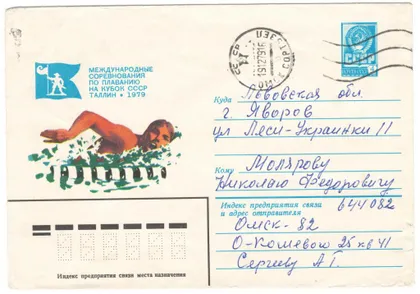 МЕЖДУНАРОДНЫЕ
СОРЕВНОВАНИЯ
ПО ПЛАВАНИЮ
НА КУБОК СССР
ТАЛЛИН • 1979
Куда Львовская обл.
г. Яворов
ул Леси-Украинки 11
Кому Молярову
Николаю Федоровичу
Индекс предприятия связи
и адрес отправителя
644082
Омск-82
О-Кошевого 25 кв 41
Сергиеву А Г.
Индекс предприятия связи места назначения